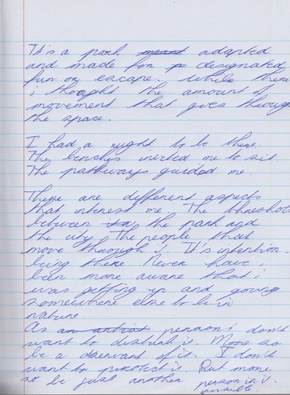 It's a park meant adapted
and made for designated
fun or escape. while there
i thought the amount of
movement that goes through
the space.
I had a right to be there.
The benches invited me to sit
The pathways guided me.
There are different aspects
that interest me. The threshold
between the park and
the city. The people that
move through. It's
being there Never have i
been more aware that i
was getting up and going
somewhere else to be in
nature
As an artist person i don't
want to disturb it. More so
be a of it. I don't
want to it. But more
so be just another person in it.